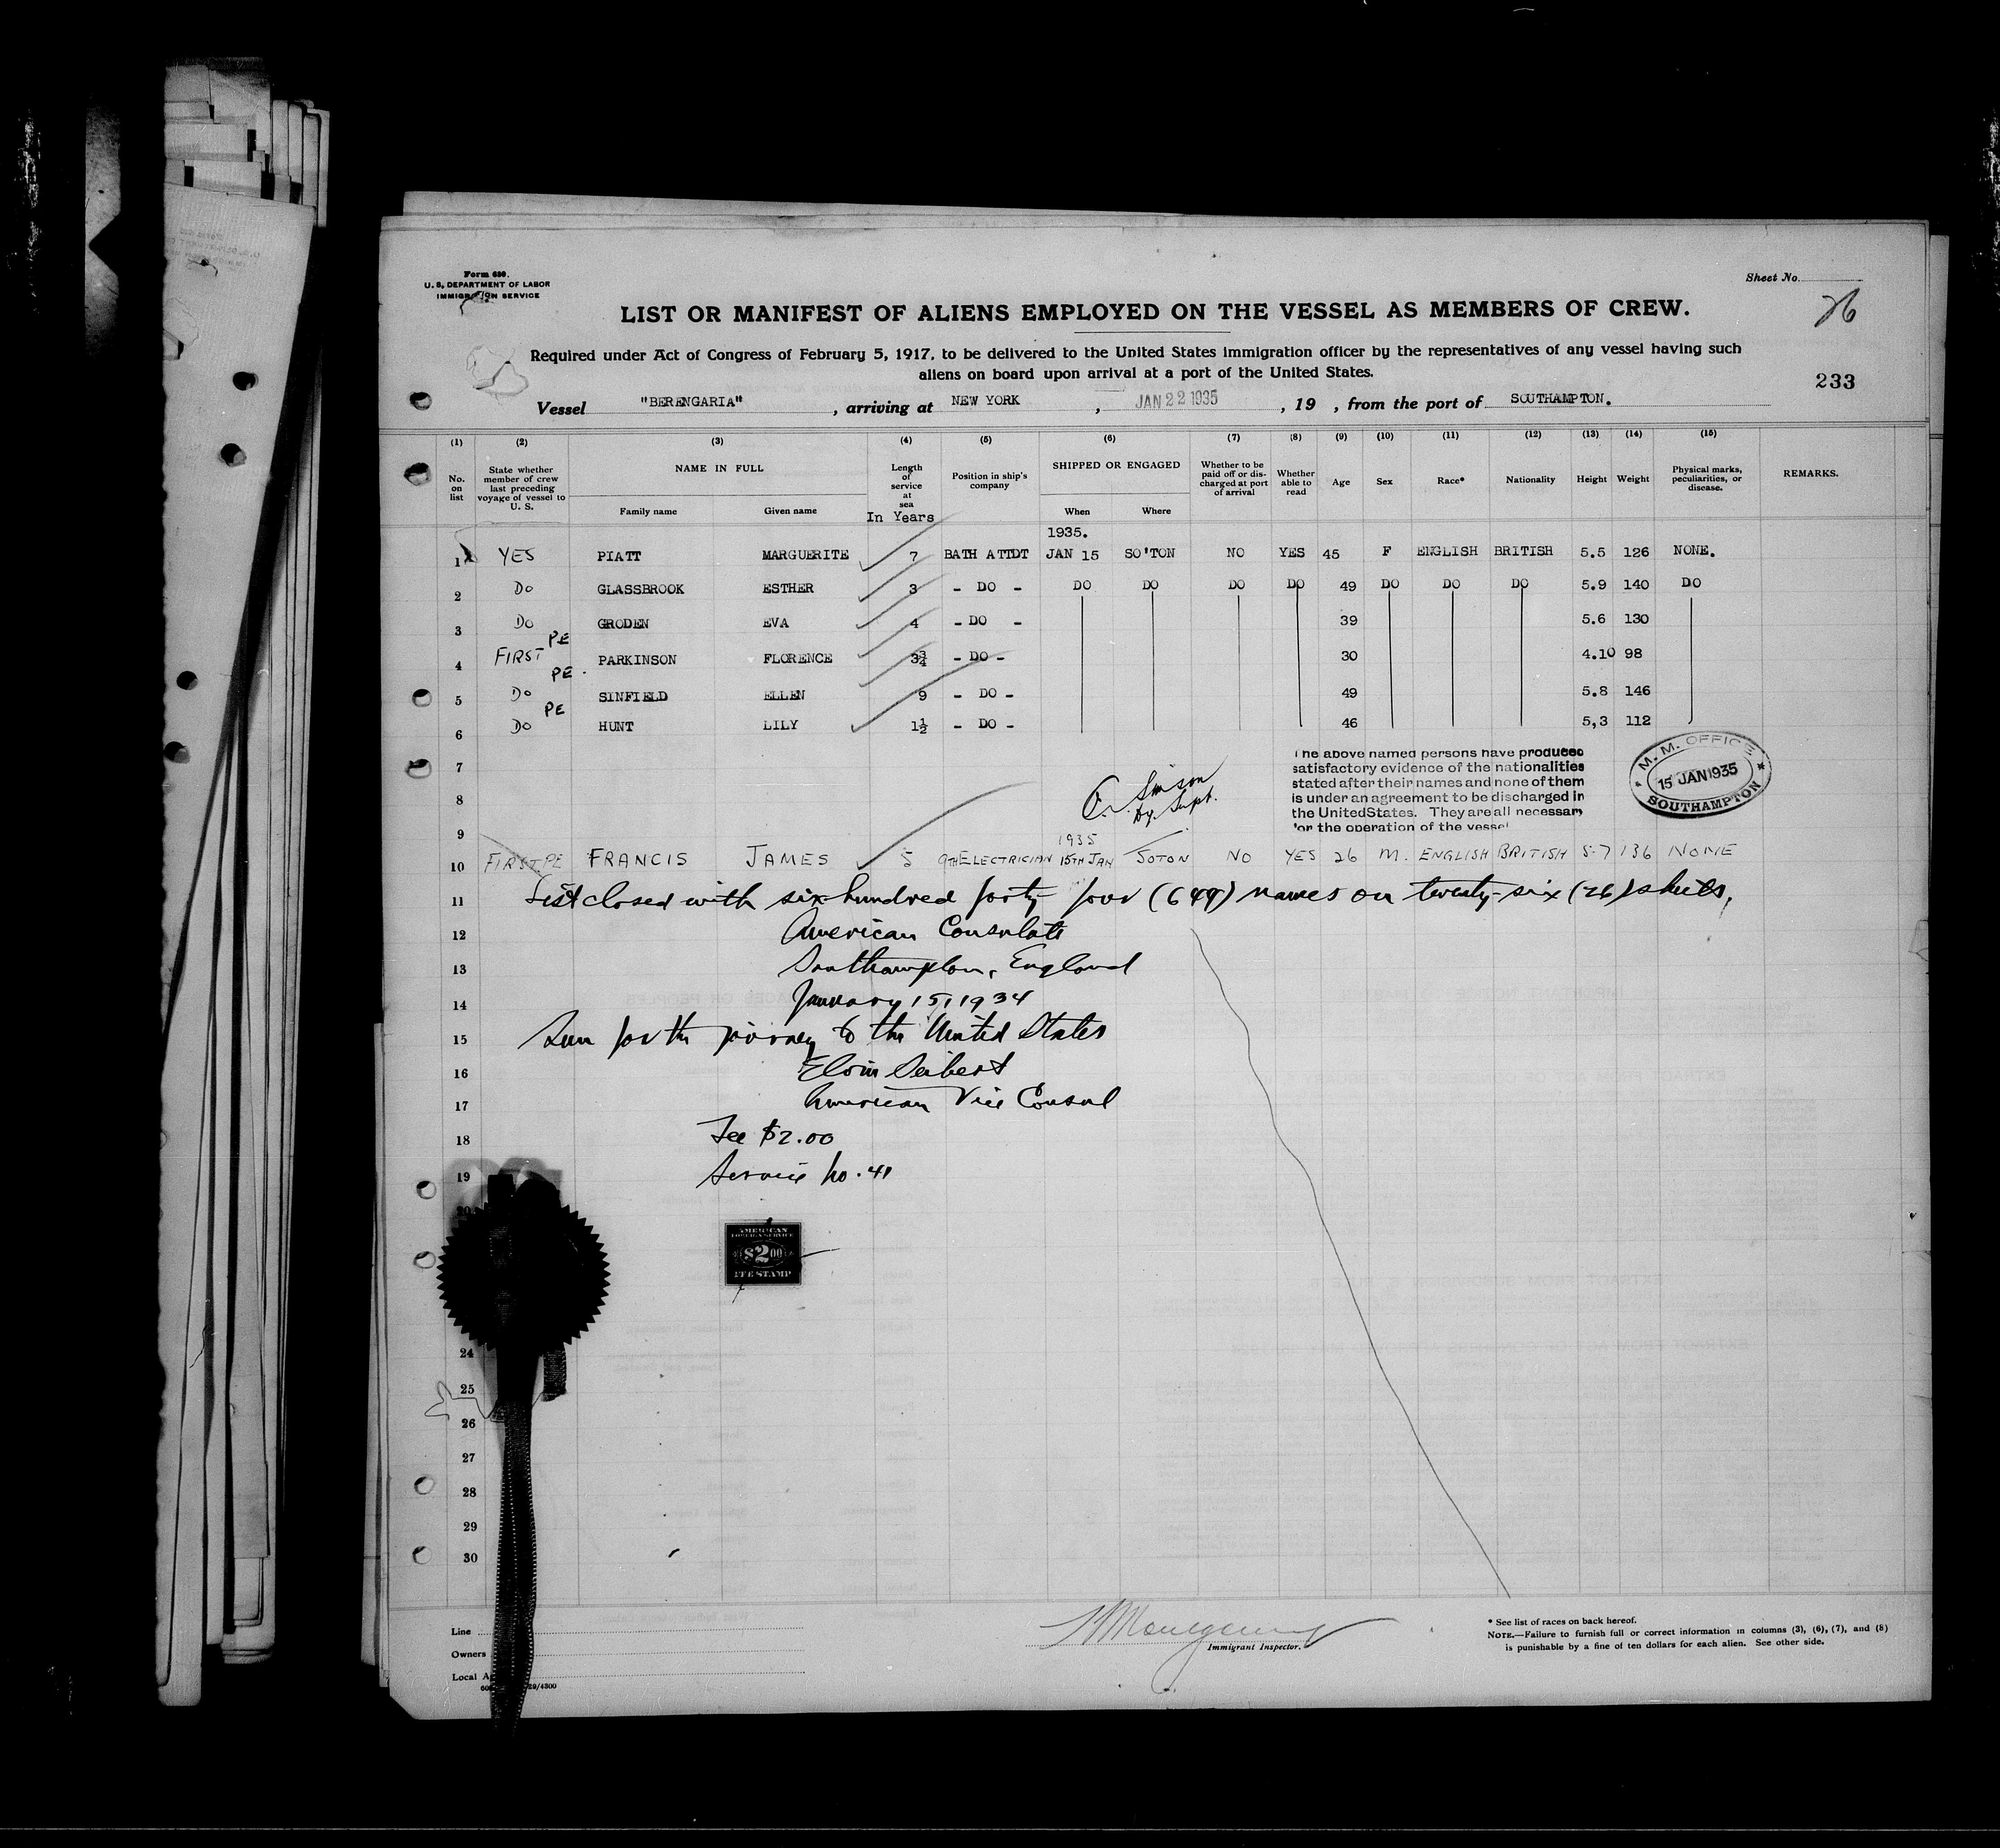 Form 680.
U. S. DEPARTMENT OF LABOR
IMMIGRATION SERVICE
Sheet No.
26
LIST OR MANIFEST OF ALIENS EMPLOYED ON THE VESSEL AS MEMBERS OF CREW.
Required under Act of Congress of February 5, 1917, to be delivered to the United States immigration officer by the representatives of any vessel having such
aliens on board upon arrival at a port of the United States.
233
Vessel "BERENGARIA" , arriving at NEW YORK , JAN 22 1935 , 19 , from the port of SOUTHAMPTON.
(1) (2) (3) (4) (5) (6) (7) (8) (9) (10) (11) (12) (13) (14) (15)
No. on list
State whether member of crew last preceding voyage of vessel to U. S.
NAME IN FULL
Family name Given name
Length of service at sea
In Years
Position in ship's company
SHIPPED OR ENGAGED
When Where
Whether to be paid off or discharged at port of arrival
Whether able to read
Age
Sex
Race*
Nationality
Height
Weight
Physical marks, peculiarities, or disease.
REMARKS.
1935.
1 YES PIATT MARGUERITE 7 BATH ATTDT JAN 15 SO'TON NO YES 45 F ENGLISH BRITISH 5.5 126 NONE.
2 DO GLASSBROOK ESTHER 3 - DO - DO DO DO DO 49 DO DO DO 5.9 140 DO
3 DO GRODEN EVA 4 - DO - 39 5.6 130
4 FIRST PE PARKINSON FLORENCE 3¾ - DO - 30 4.10 98
5 DO PE. SINFIELD ELLEN 9 - DO - 49 5.8 146
6 DO PE HUNT LILY 1½ - DO - 46 5,3 112
7
8
9
The above named persons have produced
satisfactory evidence of the nationalities
stated after their names and none of them
is under an agreement to be discharged in
the United States. They are all necessary
for the operation of the vessel
M. M. OFFICE
15 JAN 1935
SOUTHAMPTON
Supt.
1935
10 FIRST PE FRANCIS JAMES 5 9TH ELECTRICIAN 15TH JAN SOTON NO YES 26 M. ENGLISH BRITISH 5-7 136 NONE
11 List closed with six hundred forty four (644) names on twenty-six (26) sheets,
12 American Consulate
13 Southampton, England
14 January 15, 1934
15 Seen for the journey to the United States
16 Elvin Seibert
17 American Vice Consul
18 Fee $2.00
19 Service No. 41
20
AMERICAN
FOREIGN SERVICE
$2.00
FEE STAMP
24
25
26
27
28
29
30
Line
Owners
Local A
29/4300
Immigrant Inspector.
* See list of races on back hereof.
NOTE.—Failure to furnish full or correct information in columns (3), (6), (7), and (8)
is punishable by a fine of ten dollars for each alien. See other side.